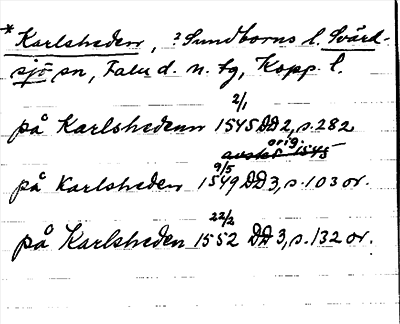 *Karlsheden, ?Sundborns l. Svärd-
sjö sn, Falu d. n. tg, Kopp. l.
2/1
på Karlshedenn 1545 DD 2, s. 282
orig.
avskr 1545
9/5
på Karlsheden 1549 DD 3, s. 103 or.
22/2
på Karlsheden 1552 DD 3, s. 132 or.